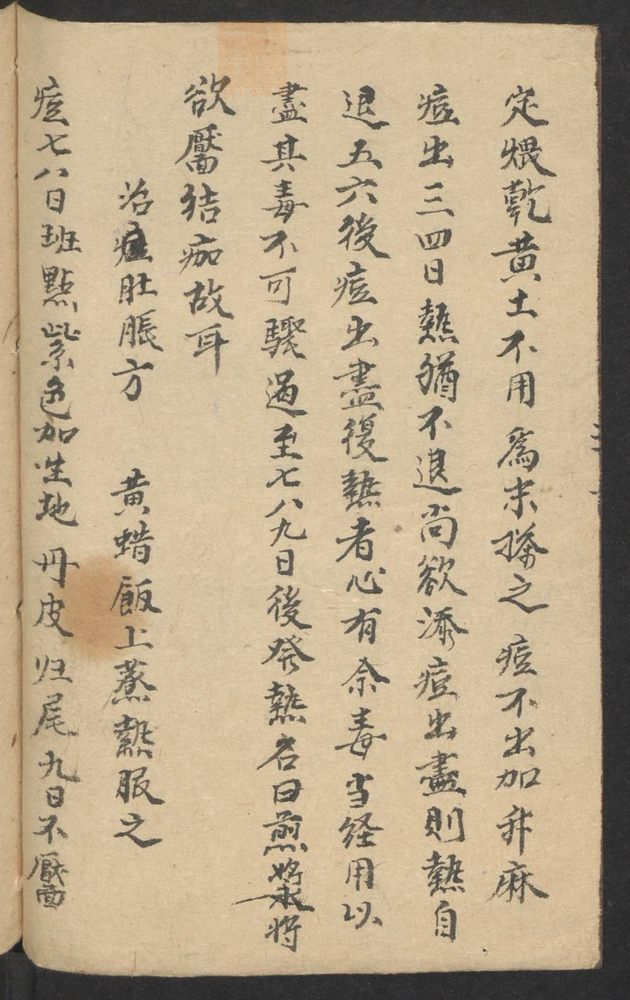 定煨乾黄土不用 為末搽之 痘不出加升麻
痘出三四日熱猶不退尚欲添痘出盡則熱自
退五六後痘出盡復熱者心有余毒当経用以
盡其毒不可驟遏至七八九日後発熱名曰煎漿将
欲靨结痂故耳
治痘肚脹方　黄蜡飯上蒸熱服之
痘七八日班點紫色加生地 丹皮 归尾 九日不靨